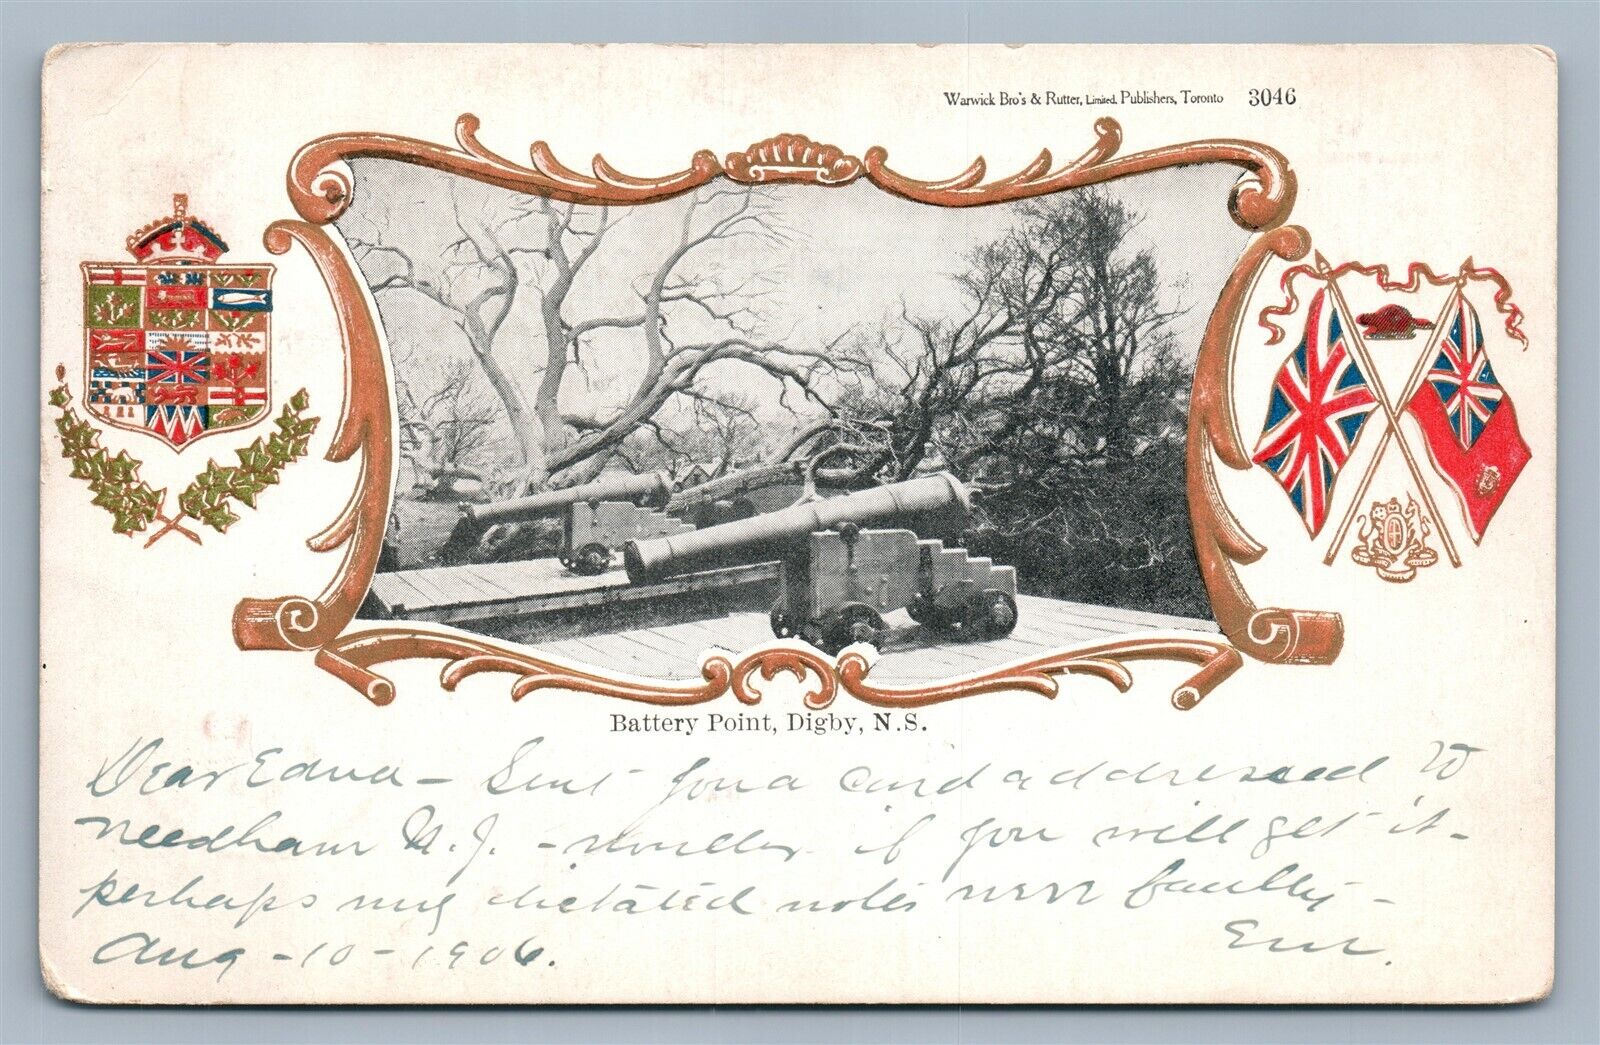 Warwick Bro's & Rutter, Limited. Publishers, Toronto 3046
Battery Point, Digby, N.S.
Dear Edna - Sent you a card addressed to
Needham N. J. - wonder if you will get it -
perhaps my dictated notes were faulty -
Aug - 10 - 1906.